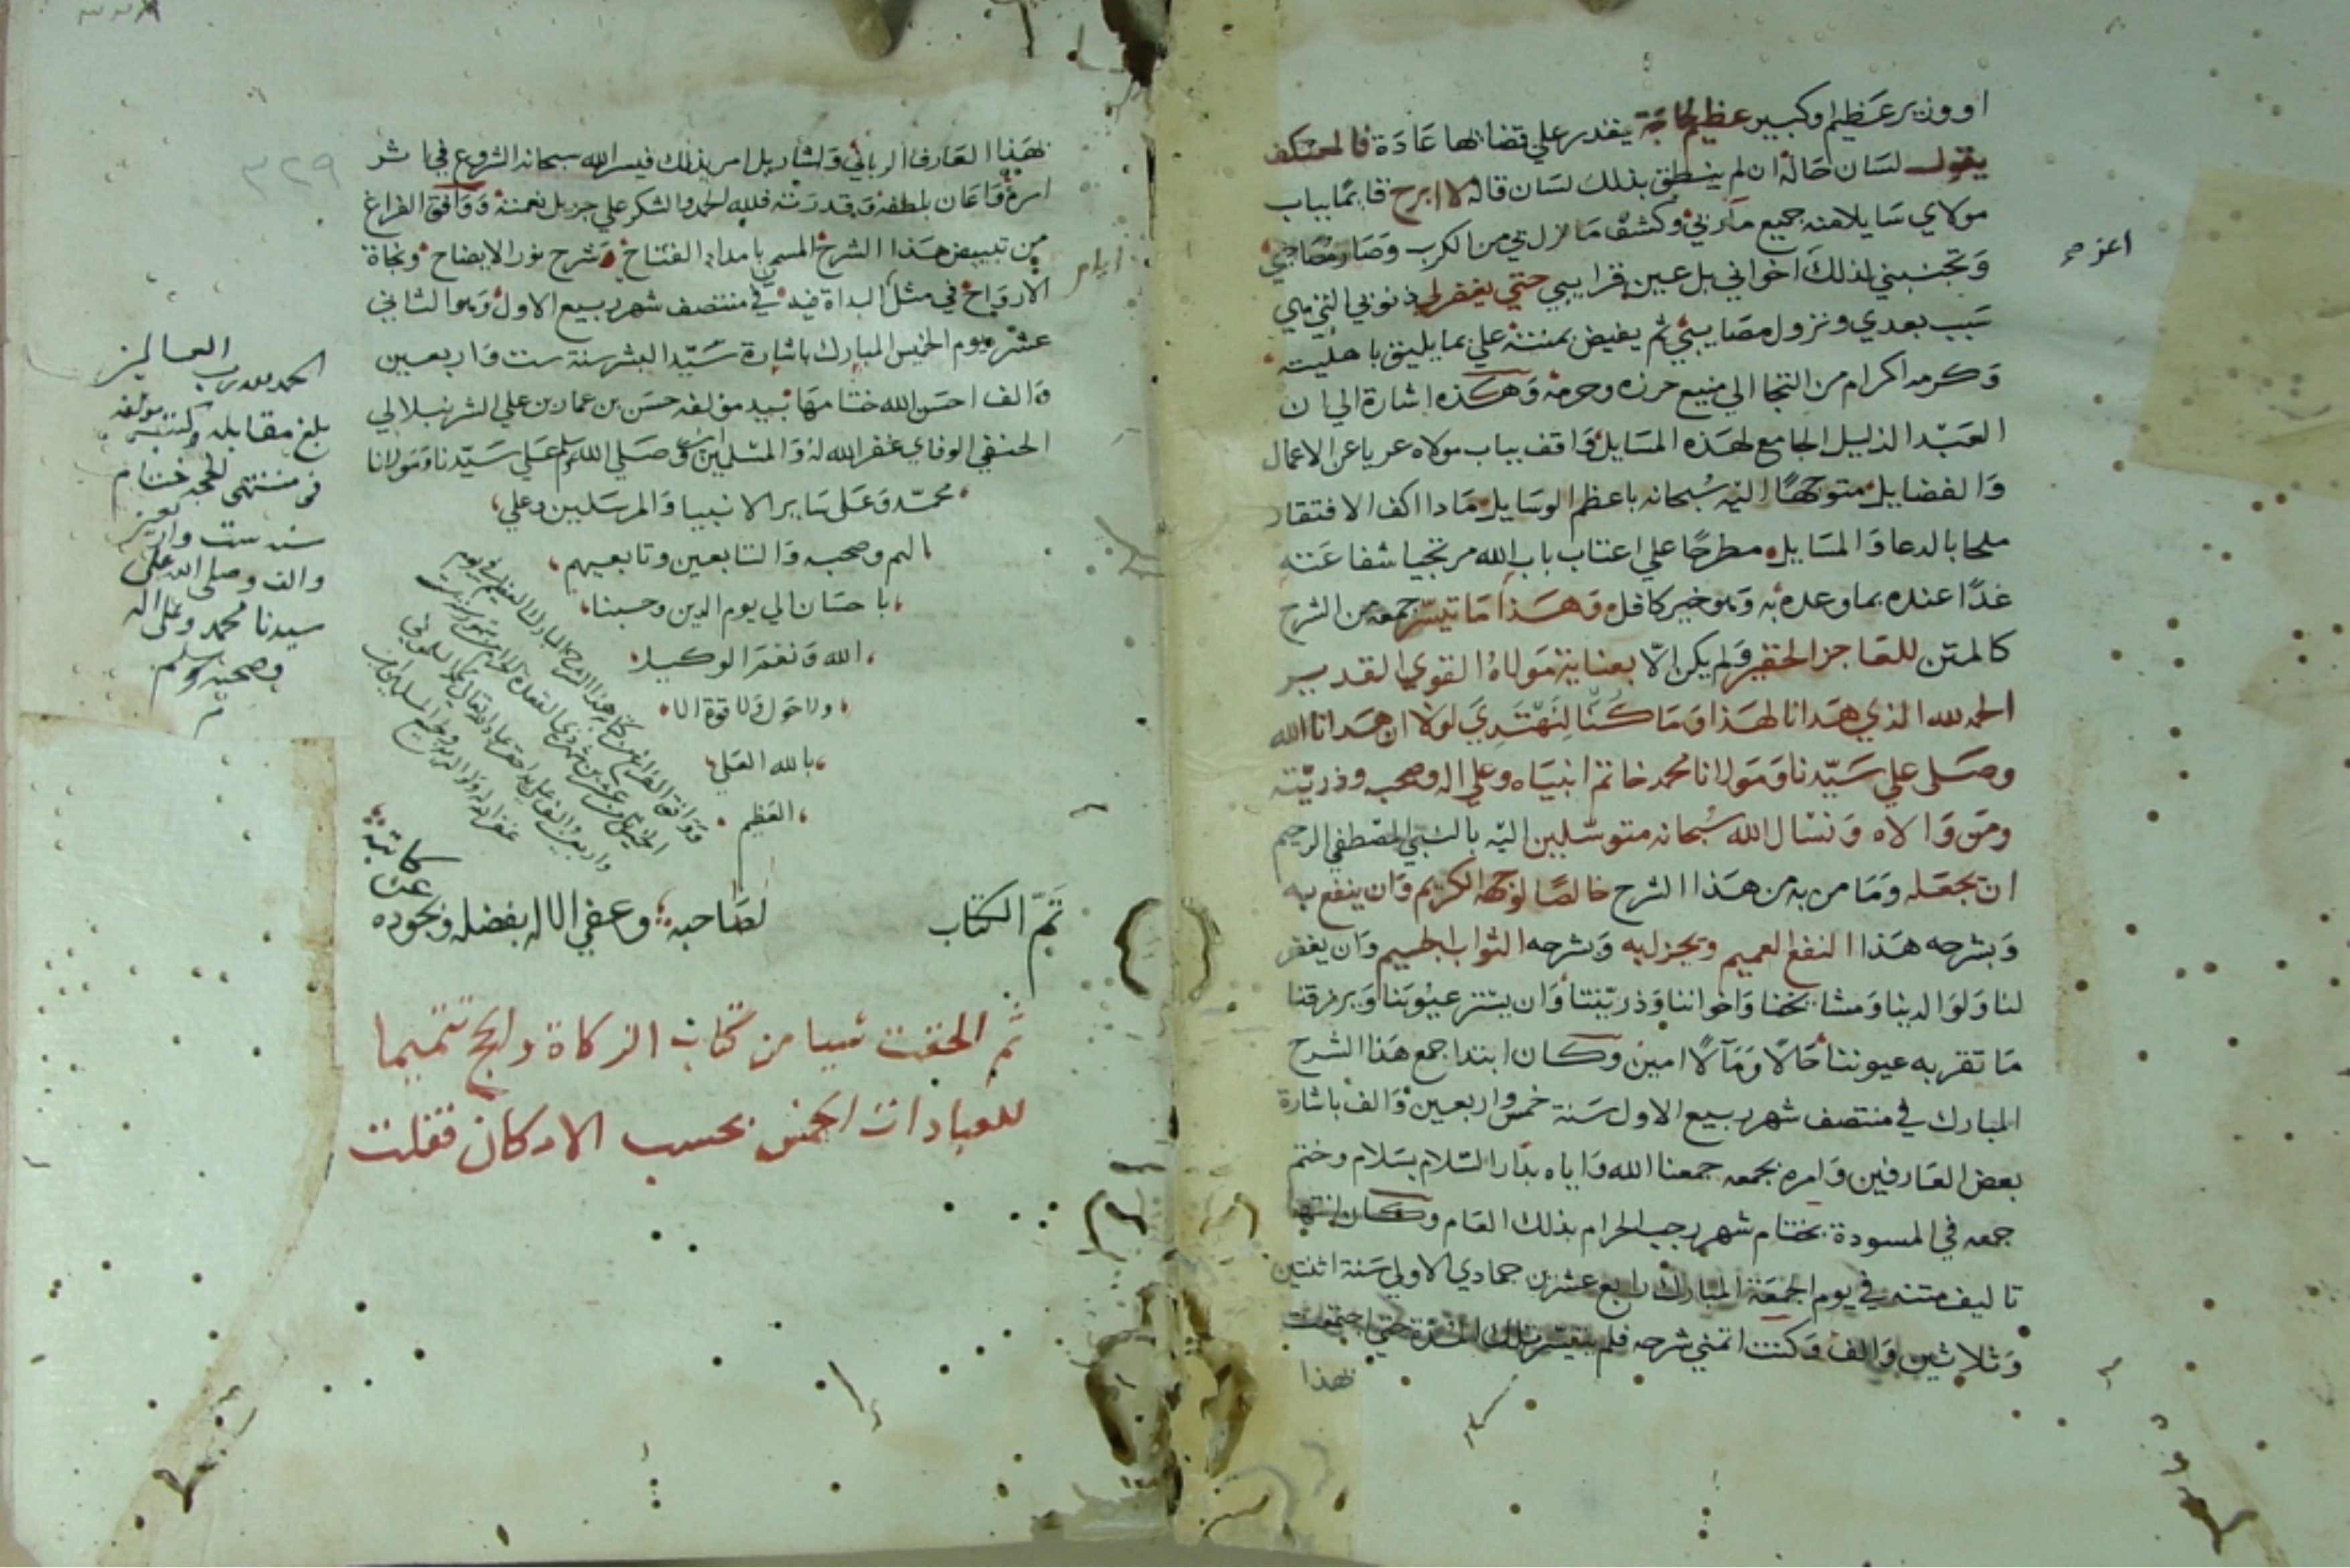 او وزير عظيم او كبير عظيم لحاجة يقدر علي قضائها عادة فالمعتكف
يقول لسان حاله ان لم ينطق بذلك لسان قاله لا ابرح قائما بباب
مولاي سايلا منه جميع مآربي وكشف ما نزل بي من الكرب وصار مصاحبي
وتجنبني لذلك اخواني بل عين قرايبي حتي يغفر لي ذنوبي التي هي
سبب بعدي ونزول مصايبي ثم يفيض بمنته علي بما يليق باهليته
وكرمه اكرام من التجا الي منيع حرزه وحرمه وهكذه اشارة الي ان
العبد الذليل الجامع لهذه المسايل واقف بباب مولاه عريا عن الاعمال
والفضايل متوجها اليه سبحانه باعظم الوسايل مادا اكف الافتقار
ملحا بالدعا والمسايل مطرحا علي اعتاب باب الله مرتجيا شفاعته
غدا عنده بما وعده به وهو خير كافل وهذا ما تيسر جمعه من الشرح
كالمتن للعاجز الحقير ولم يكن الا بعناية مولاه القوي القدير
الحمد لله الذي هدانا لهذا وما كنا لنهتدي لولا ان هدانا الله
وصلي علي سيدنا ومولانا محمد خاتم انبياه وعلي اله وصحبه وذريته
ومن والاه ونسال الله سبحانه متوسلين اليه بالنبي المصطفي الرحيم
ان يجعله وما من به من هذا الشرح خالصا لوجهه الكريم وان ينفع به
وبشرحه هذا النفع العميم ويجزل به وبشرحه الثواب الجسيم وان يغفر
لنا ولوالدينا ومشايخنا واخواننا وذريتنا وان يستر عيوبنا ويرزقنا
ما تقر به عيوننا حالا ومآلا امين وكان ابتدا جمع هذا الشرح
المبارك في منتصف شهر ربيع الاول سنة خمس واربعين والف باشارة
بعض العارفين وامره بجمعه جمعنا الله واياه بدار السلام بسلام وختم
جمعه في المسودة بختام شهر رجب الحرام بذلك العام وكان انتها
تاليف متنه في يوم الجمعة المبارك رابع عشرين جمادي الاولي سنة اثنتين
وثلاثين والف وكنت اتمني شرحه فلم يتيسر تلك المدة حتي اجتمعت
لهذا
٣٢٩
بهذا العارف الرباني واشار بل امر بذلك فيسر الله سبحانه الشروع في اثر
امره واعان بلطفه وقدرته فلله الحمد والشكر علي جزيل نعمته ووافق الفراغ
من تبييض هذا الشرح المسمي بامداد الفتاح شرح نور الايضاح ونجاة
الارواح في مثل البداة فيه في منتصف شهر ربيع الاول وهو الثاني
عشر يوم الخميس المبارك باشارة سيد البشر سنة ست واربعين
والف احسن الله ختامها بيد مؤلفه حسن بن عمار بن علي الشرنبلالي
الحنفي الوفاي غفر الله له والمسلمين امين وصلي الله وسلم علي سيدنا ومولانا
محمد وعلي ساير الانبيا والمرسلين وعلي
الهم وصحبه والتابعين وتابعيهم
باحسان الي يوم الدين وحسبنا
الله ونعم الوكيل
ولا حول ولا قوة الا
بالله العلي
العظيم
الحمد لله رب العالمين
بلغ مقابلة وكتبه مولفه
في منتهى الحجة ختام
سنة ست واربعين
والف وصلى الله على
سيدنا محمد وعلى اله
وصحبه وسلم
تم الكتاب لصاحبه وعفي الاله بفضله وبجوده
عن كاتبه
ثم الحقت شيا من كتاب الزكاة والحج تتميما
للعبادات الخمس بحسب الامكان فقلت